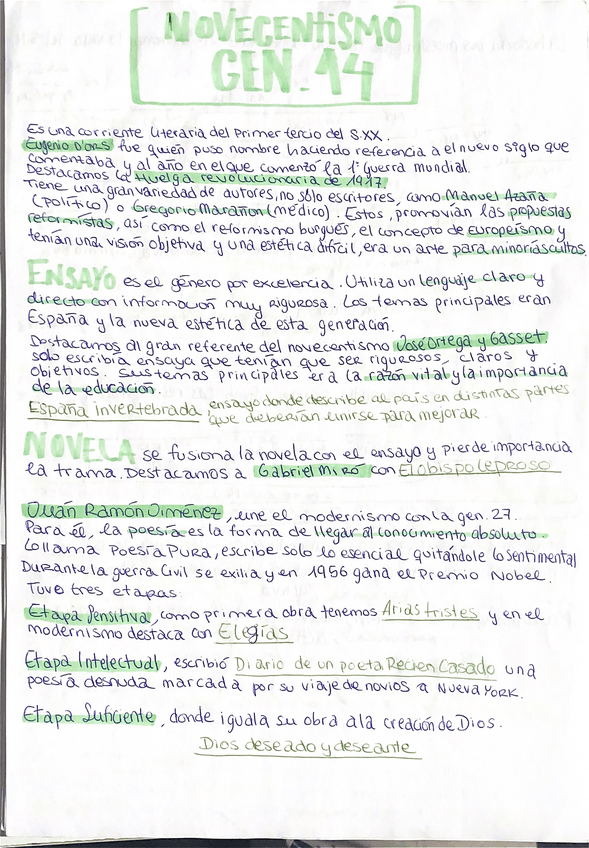 NOVECENTISMO
GEN. 14
Es una corriente literaria del primer tercio del S.XX.
Eugenio D'ors fue quién puso nombre haciendo referencia al nuevo siglo que
comentaba y al año en el que comenzó la 1ª Guerra mundial.
Destacamos la Huelga revolucionaria de 1917.
Tiene una gran variedad de autores, no sólo escritores, como Manuel Azaña
(político) o Gregorio Marañon (médico). Estos, promovían las propuestas
reformistas, así como el reformismo burgués, el concepto de europeísmo y
tenían una visión objetiva y una estética difícil, era un arte para minorías cultas.
ENSAYO es el género por excelencia. Utiliza un lenguaje claro y
directo con información muy rigurosa. Los temas principales eran
España y la nueva estética de esta generación.
Destacamos al gran referente del novecentismo José Ortega y Gasset.
solo escribía ensaya que tenían que ser rigurosos, claros y
objetivos. Sus temas principales era la razón vital y la importancia
de la educación.
España invertebrada, ensayo donde describe al país en distintas partes
que deberían unirse para mejorar.
NOVELA se fusiona la novela con el ensayo y pierde importancia
la trama. Destacamos a Gabriel Miró con El obispo leproso
Juán Ramón Jiménez, une el modernismo con la gen. 27.
Para él, la poesía es la forma de llegar al conocimiento absoluto.
Lo llama Poesía Pura, escribe solo lo esencial quitándole lo sentimental
Durante la guerra Civil se exilia y en 1956 gana el Premio Nobel.
Tuvo tres etapas:
Etapa Sensitiva, como primera obra tenemos Arias tristes y en el
modernismo destaca con Elegías
Etapa Intelectual, escribió Diario de un poeta Recien Casado una
poesía desnuda marcada por su viaje de novios a Nueva York.
Etapa Suficiente, donde iguala su obra a la creación de Dios.
Dios deseado y deseante